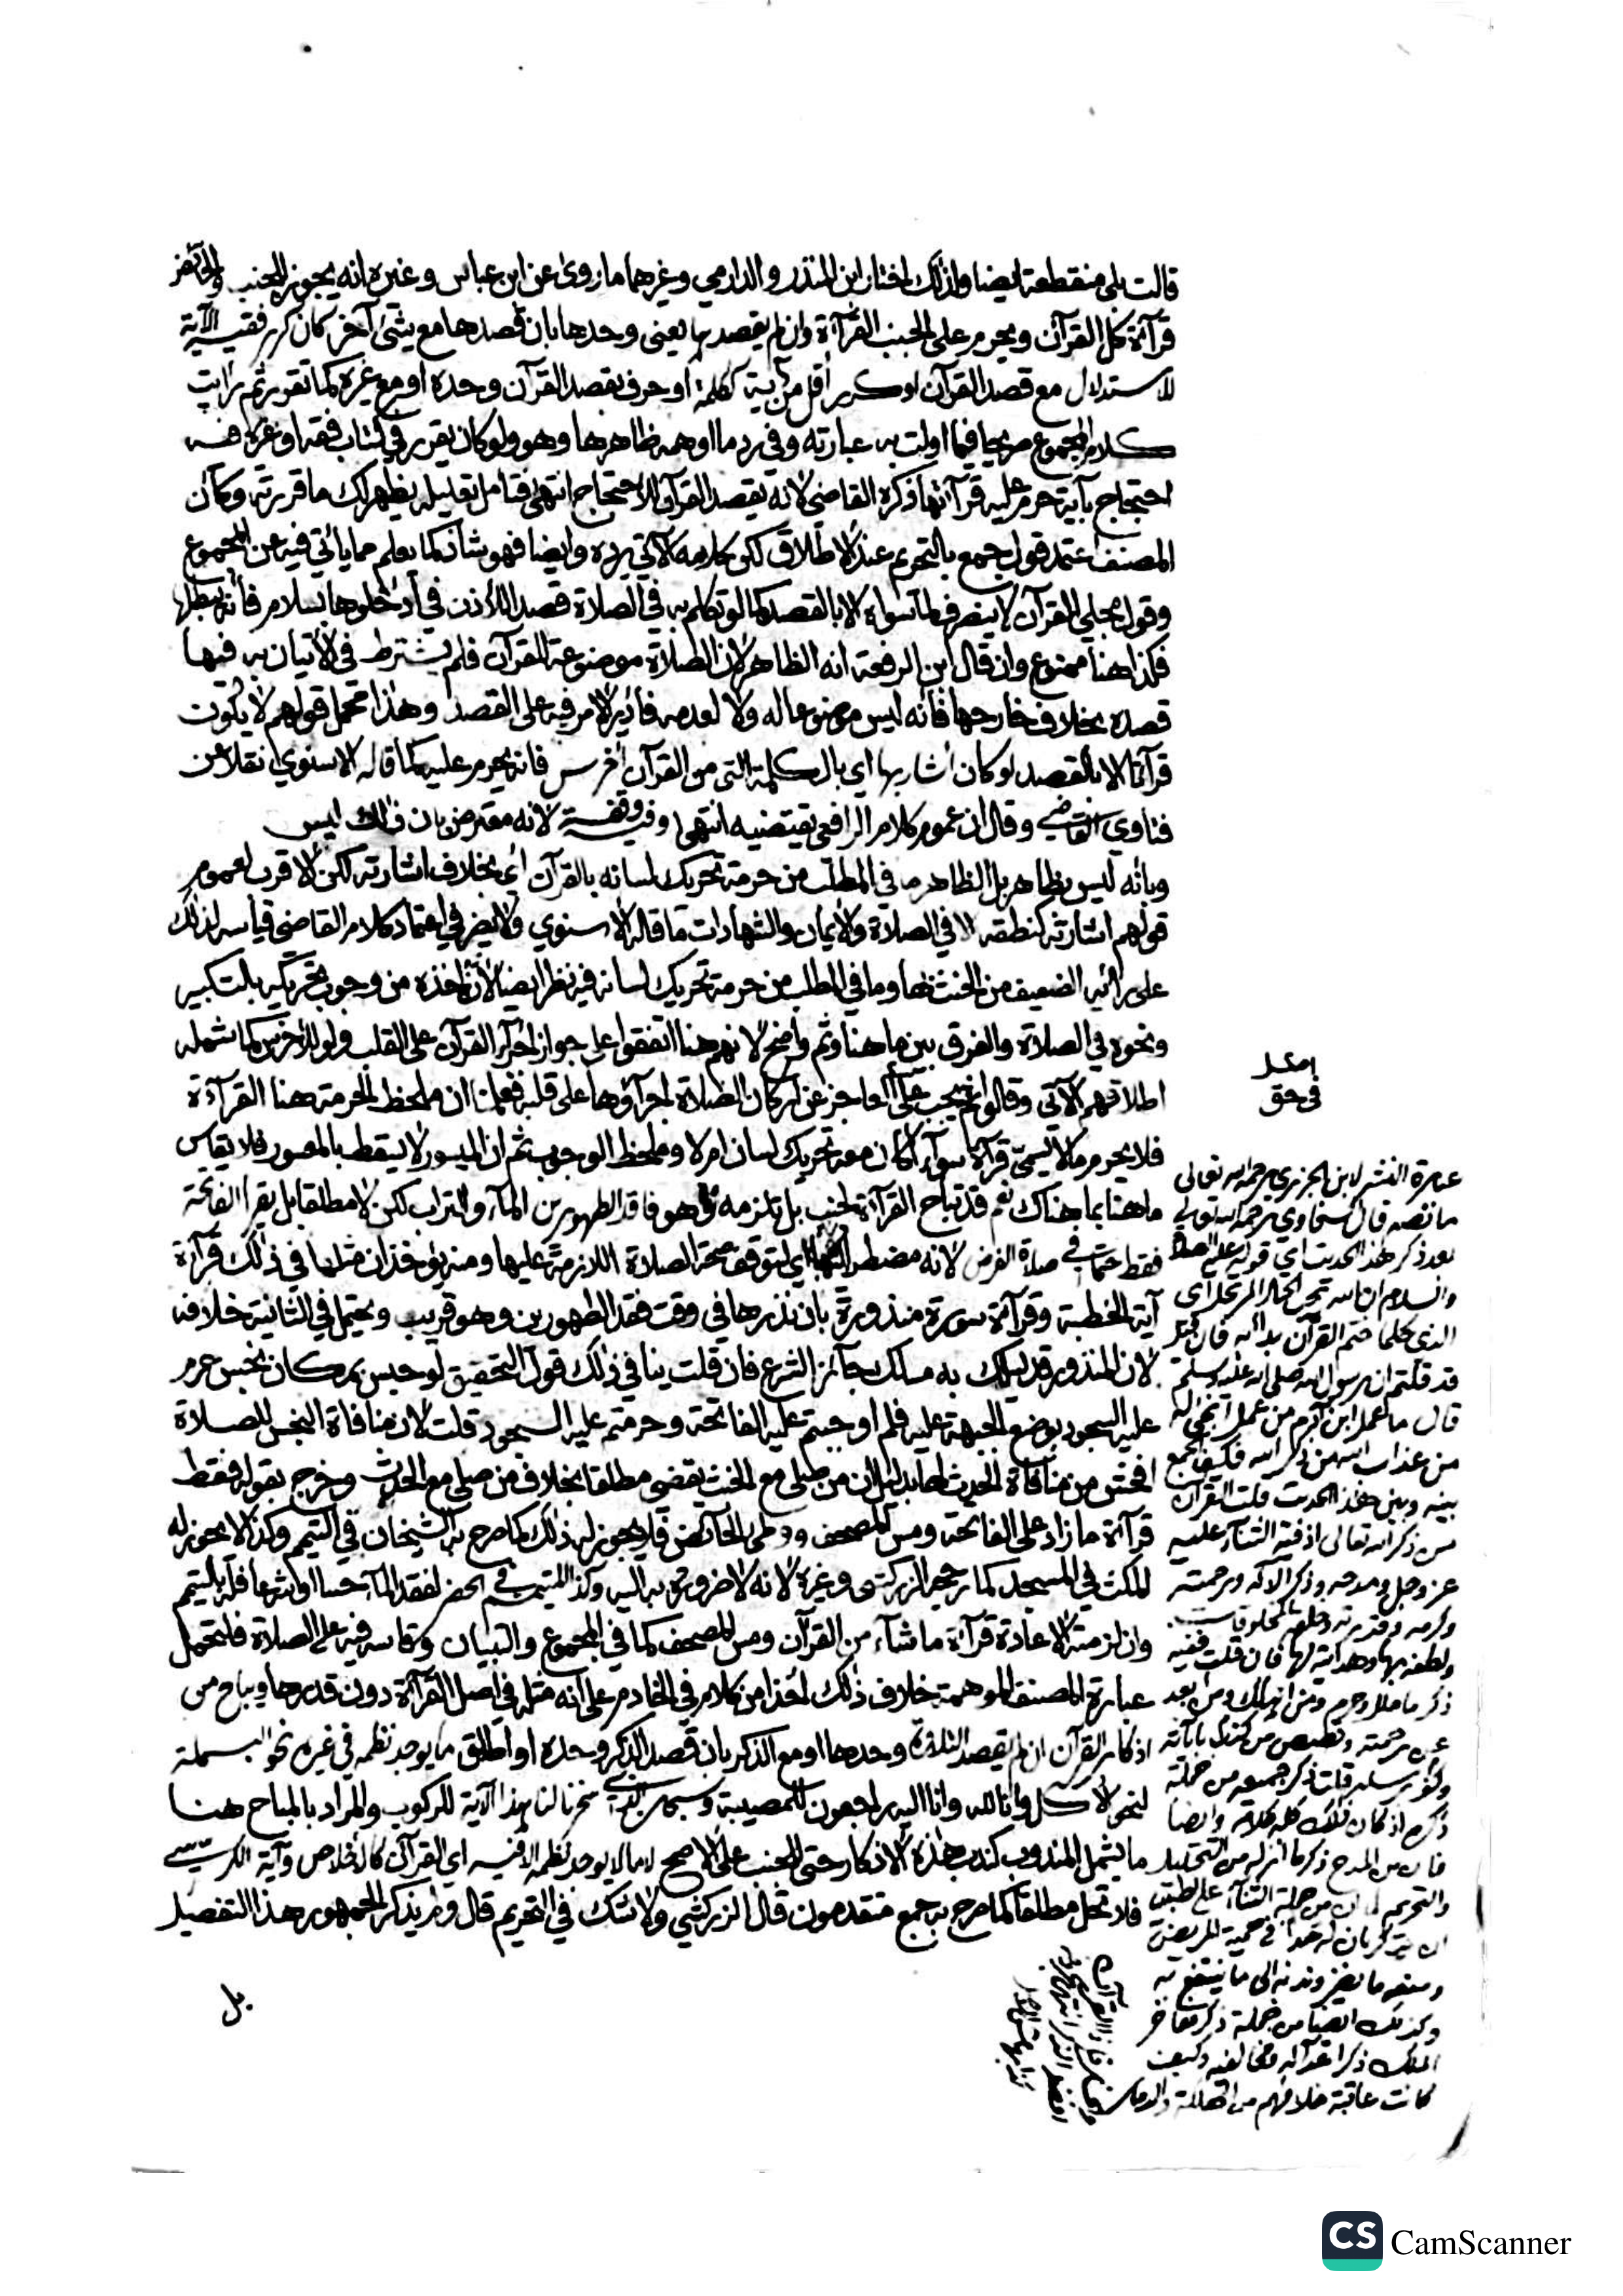 قالت بلى منقطعة ايضا ولذلك اختار ابن المنذر والدارمي وغيرهما ما روى عن ابن عباس وغيره انه يجوز للجنب والحائض
قرآءة كل القرآن ويحرم على الجنب القرآءة وان لم يقصدها يعنى وحدها بان قصدها مع شئ آخر كان كرر فقيه الآية
للاستدلال مع قصد القرآن او كرر اقل من آية ككلمة او حرف بقصد القرآن وحده او مع غيره كما تقرر ثم رايت
كلام المجموع صريحا فيما اولت به عبارته وفي رد ما اوهمه ظاهرها وهو ولو كان يقرر في كتاب فقه او غيره فيه
احتجاج بآية حرم عليه قرآءتها ذكره القاضي لانه يقصد القرآن للاحتجاج انتهى فتامل تعليله يظهر لك ما قررته وكان
المصنف اعتمد قول جمع بالتحريم عند الاطلاق لكن كلامه الآتي يرده وايضا فهو شاذ كما يعلم مما ياتي فيه عن المجموع
وقول مجلي القرآن لا ينصرف لما سواه الا بالقصد كما لو تكلم به في الصلاة قصد الاذن في ادخلوها بسلام فانه يبطلها
فكذا هنا ممنوع وان قال ابن الرفعة انه الظاهر لان الصلاة موضوعة للقرآن فلم يشترط في الاتيان به فيها
قصده بخلاف خارجها فانه ليس موضوعا له ولا لعدمه فادير الامر فيه على القصد وهذا محمل قولهم لا يكون
قرآنا الا بالقصد او كان اشار بها اي بالكلمة التي من القرآن اخرس فانه يحرم عليه كما قاله الاسنوي نقلا عن
فتاوي القاضي وقال ان عموم كلام الرافعي يقتضيه انتهى وفيه وقفة لانه معترض بان ذلك ليس
وبانه ليس بظاهر بل الظاهر ما في المطلب من حرمة تحريك لسانه بالقرآن اي بخلاف اشارته لكن الاقرب لعموم
قولهم اشارته كنطقه الا في الصلاة والايمان والشهادات ما قاله الاسنوي ولا يضر في اعتماد كلام القاضي قياسه لذلك
على رائيه الضعيف من الحنث بها وما في المطلب من حرمة تحريك لسانه فيه نظر ايضا لانه اخذه من وجوب تحريكه بالتكبير
ونحوه في الصلاة والفرق بين ما هنا وثم واضح لانهم هنا اتفقوا على جواز اجراء القرآن على القلب ولو للاخرس كما شمله
اطلاقهم الآتي وقالوا ثم يجب على العاجز عن اركان الصلاة اجراؤها على قلبه فعلمنا ان ملحظ الحرمة هنا القرآءة
فلا يحرم ما لا يسمى قرآءة سوآء اكان معه تحريك لسان ام لا وملحظ الوجوب ثم ان الميسور لا يسقط بالمعسور فلا يقاس
ما هنا بما هناك نعم قد تباح القرآءة لجنب بل تلزمه وهو فاقد الطهورين المآء والتراب لكن لا مطلقا بل يقرا الفاتحة
فقط حتما في صلاة الفرض لانه مضطر اليها اي لتوقف صحة الصلاة اللازمة عليها ومنه يؤخذ ان مثلها في ذلك قرآءة
آية الخطبة وقرآءة سورة منذورة بان نذرها في وقت فقد الطهورين وهو قريب ويحتمل في الثانية خلافه
لان المنذور قد يسلك به مسلك جآئز الشرع فان قلت ينافي ذلك قول التحقيق لو حبس بمكان نجس حرم
عليه السجود بوضع الجبهة عليه فلم اوجبتم عليه الفاتحة وحرمتم عليه السجود قلت لان منافاة النجس للصلاة
افحش من منافاة الحدث لها بدليل ان من صلى مع الخبث يقضي مطلقا بخلاف من صلى مع الحدث وخرج بقوله فقط
قرآءة ما زاد على الفاتحة ومس المصحف ووطئ الحآئض فلا يجوز له ذلك كما صرح به الشيخان في التيمم وكذا لا يجوز له
المكث في المسجد كما رجحه الزركشي وغيره لانه لا ضرورة به اليه وكذا للمتيمم في الحضر لفقد المآء حسا او شرعا فله بالتيمم
وان لزمته الاعادة قرآءة ما شآء من القرآن ومس المصحف كما في المجموع والتبيان وقاسه فيه على الصلاة فلتحمل
عبارة المصنف الموهمة خلاف ذلك اخذا من كلامه في الخادم على انه مثله في اصل القرآءة دون قدرها ويباح من
اذكار القرآن ان لم يقصد التلاوة وحدها او مع الذكر بان قصد الذكر وحده او اطلق ما يوجد نظمه في غيره نحو البسملة
لنحو الاكل وانا لله وانا اليه راجعون للمصيبة وسبحان الذي سخر لنا هذا الآية للركوب والمراد بالمباح هنا
ما يشمل المندوب كندب هذه الاذكار حتى للجنب على الاصح اما ما لا يوجد نظمه الا فيه اي القرآن كالاخلاص وآية الكرسي
فلا تحل مطلقا كما صرح به جمع متقدمون قال الزركشي ولا شك في التحريم قال ولم يذكر الجمهور هذا التفصيل
بل
في حق
عبارة النشر لابن الجزري رحمه الله تعالى
ما نصه قال السخاوي رحمه الله تعالى
بعد ذكر هذا الحديث اي قوله عليه الصلاة
والسلام ان الله تحب الحال المرتحل اي
الذي كلما ختم القرآن بداله فان قيل
قد قلتم ان رسول الله صلى الله عليه وسلم
قال ما عمل ابن آدم من عمل انجى له
من عذاب الله من ذكر الله فكيف الجمع
بينه وبين هذا الحديث قلت القرآن
من ذكر الله تعالى اذ فيه الثنآء عليه
عز وجل ومدحه وذكر آلائه ورحمته
وكرمه وقدرته وخلقه المخلوقات
ولطفه بها وهدايته لها فان قلت ففيه
ذكر ما حلل وحرم ومن اهلك ومن ابعد
عن رحمته وقصص من كذب بآياته
وكفر برسله قلت ذكر جميعه من جملة
ذكره اذ كان ذلك كله كلامه وايضا
فان من المدح ذكر ما انزله من التحليل
والتحريم ان من جملة الثنآء على الطبيب
ان يذكر بان له جدا في حمية المريض
ومنعه ما يضره وندبه الى ما ينتفع به
وكذلك ايضا من جملة ذكر مفاخر
الملك ذكر اعدآئه ومخالفيه وكيف
كانت عاقبة خلافهم من الهلاك والدمار
CS CamScanner